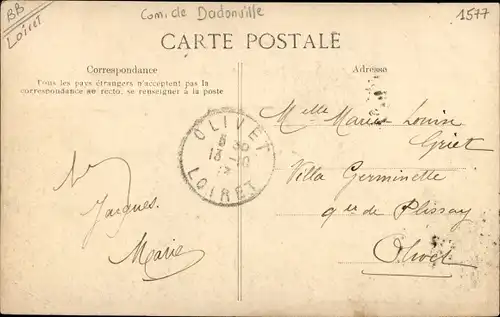 BB
Loiret
Com. de Dadonville
1577
CARTE POSTALE
Correspondance
Tous les pays étrangers n'acceptent pas la
correspondance au recto, se renseigner à la poste
Adresse
OLIVET
13
LOIRET
Jacques
Marie
Melle Marie Louise
Griet
Villa Germinette
de Plissay
Olivet